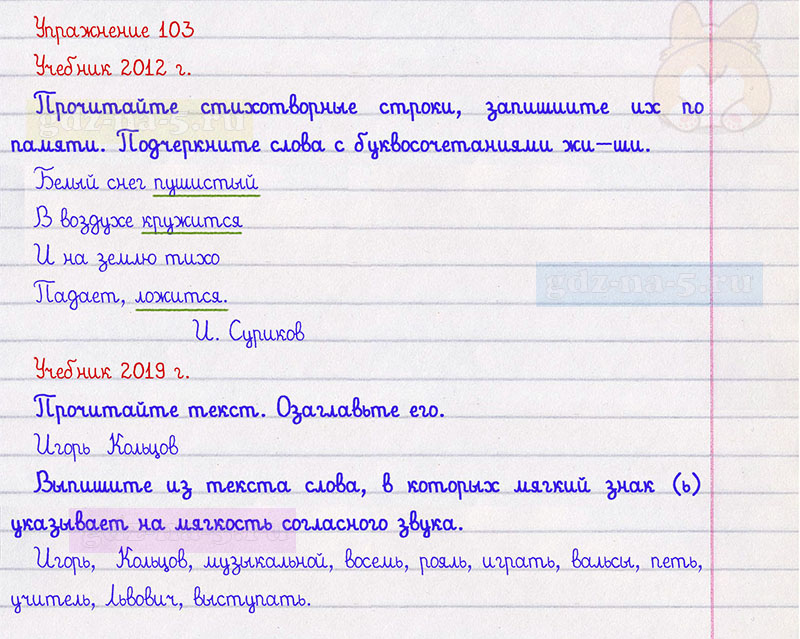 Упражнение 103
Учебник 2012 г.
Прочитайте стихотворные строки, запишиите их по
памяти. Подчеркните слова с буквосочетаниями жи–ши.
Белый снег пушистый
В воздухе кружится
И на землю тихо
Падает, ложится.
И. Суриков
gdz-na-5.ru
Учебник 2019 г.
Прочитайте текст. Озаглавьте его.
Игорь Кольцов
Выпишите из текста слова, в которых мягкий знак (ь)
указывает на мягкость согласного звука.
Игорь, Кольцов, музыкальной, восемь, рояль, играть, вальсы, петь,
учитель, Львович, выступать.